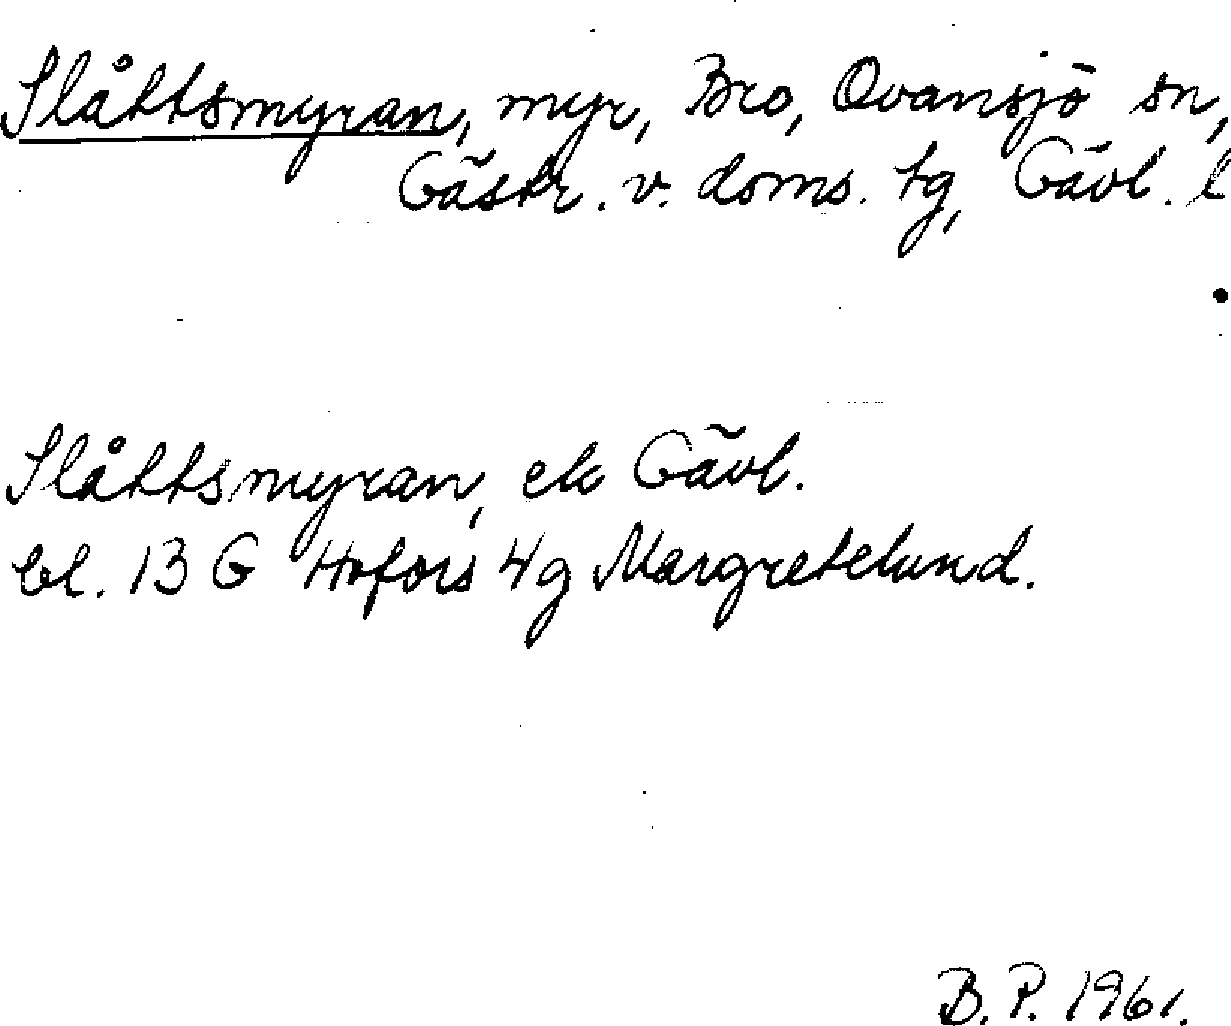 Slåttsmyran, myr, Bro, Ovansjö sn,
Gästr. v. doms. tg, Gävl. l
Slåttsmyran, ek Gävl.
bl. 13 G Hofors 4g Margretelund.
B. P. 1961.